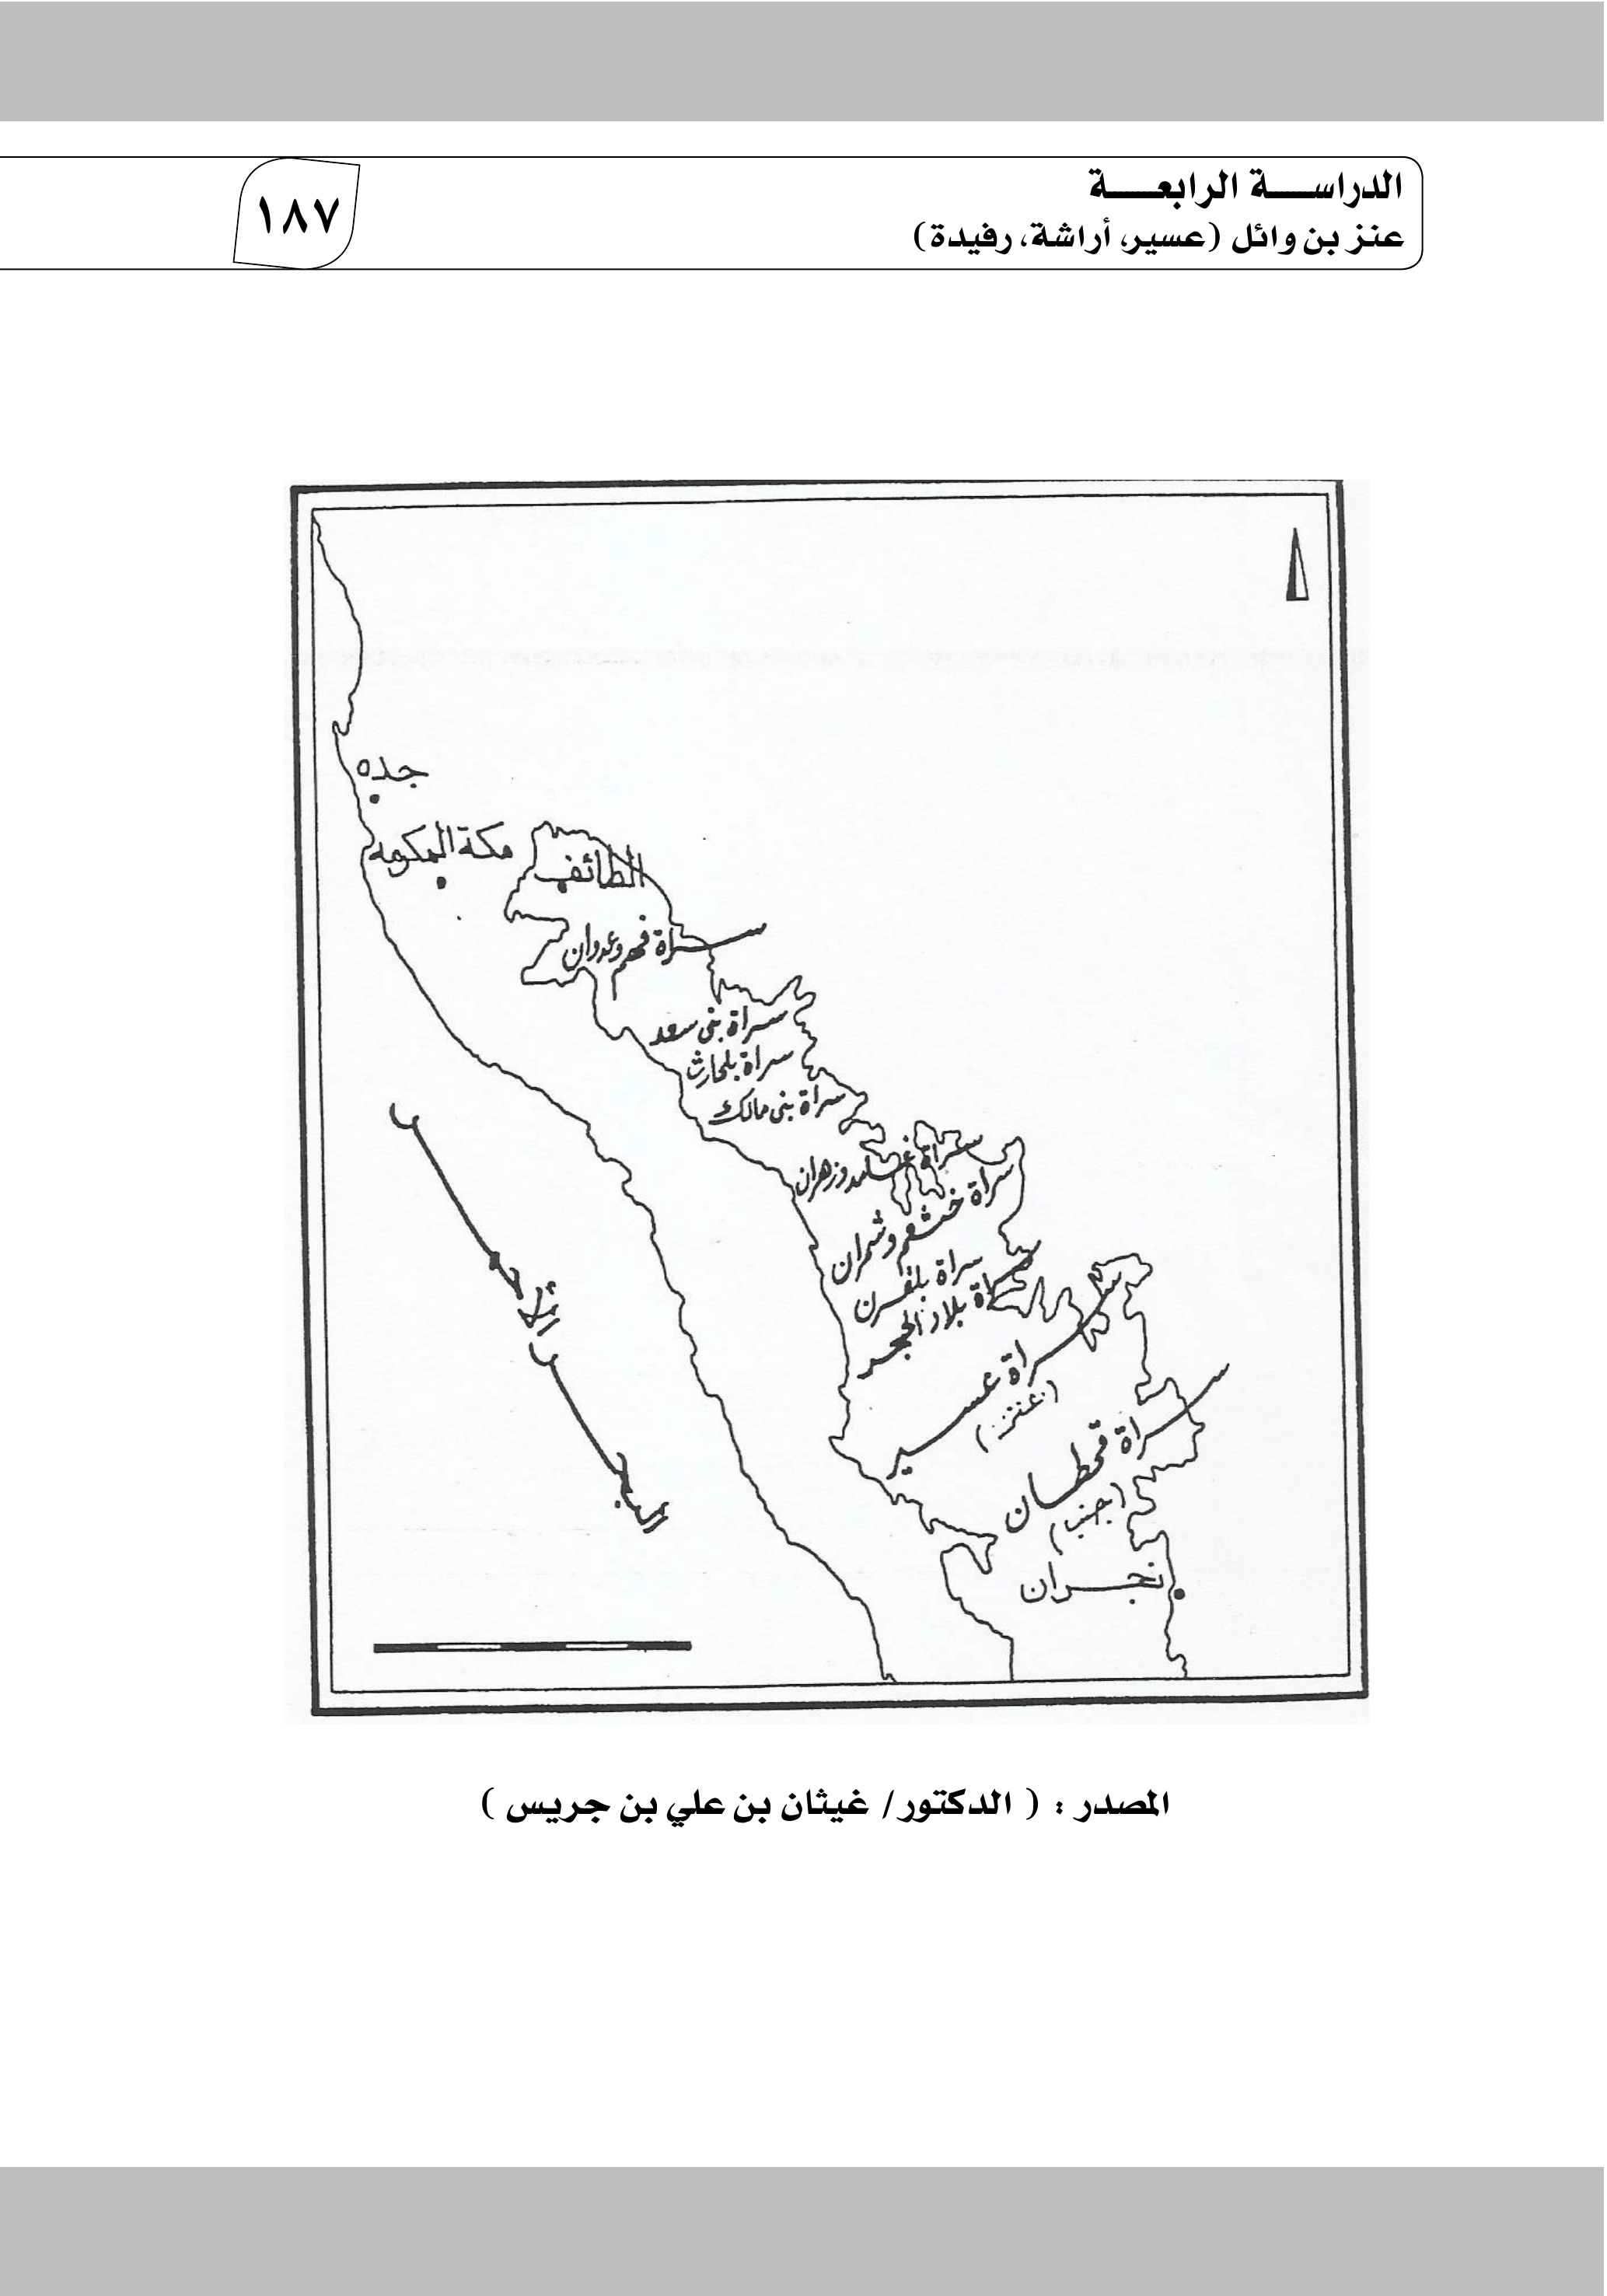 الدراســـة الرابعـــة
عنز بن وائل (عسير، أراشة، رفيدة)
١٨٧
جده
مكة المكرمه
الطائف
سراة فهم وعدوان
سراة بني سعد
سراة بلحارث
سراة بني مالك
سراة غامد وزهران
سراة خثعم وشمران
سراة بلقرن
سراة بلاد الحجر
سراة عسير
(عنز)
سراة قحطان
(جنب)
نجران
المصدر : ( الدكتور/ غيثان بن علي بن جريس )